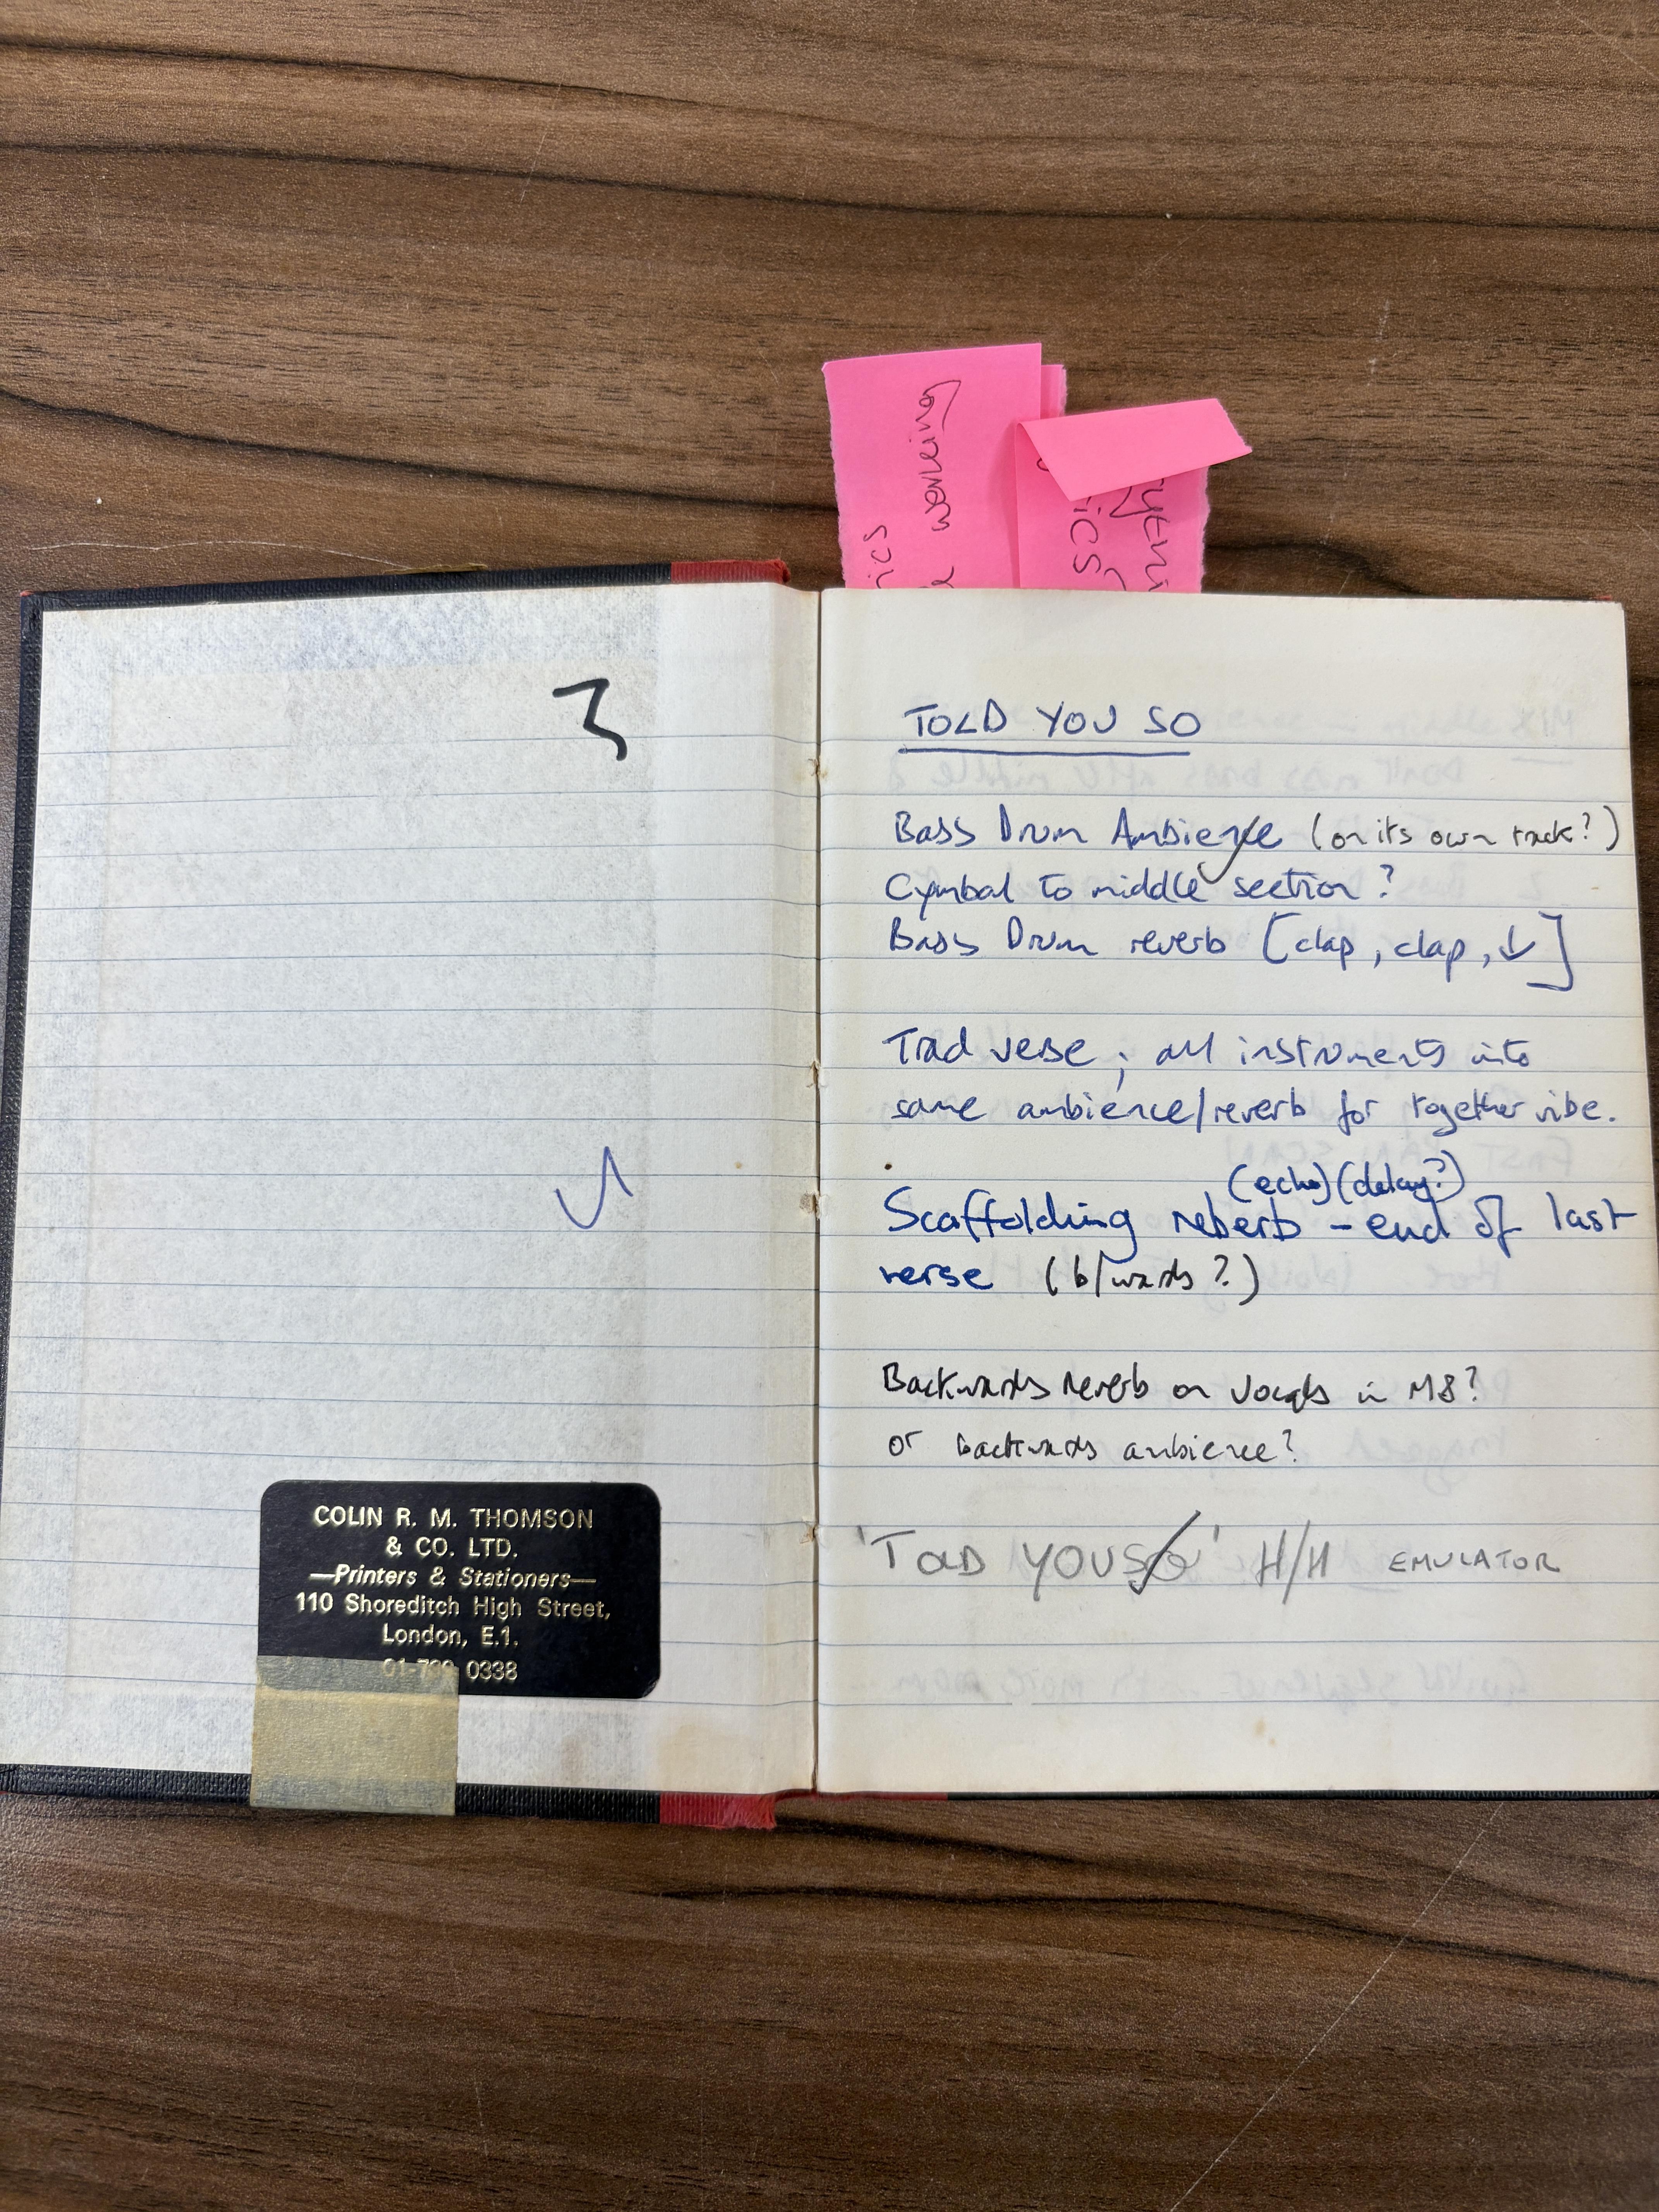 working
ics
ics
3
COLIN R. M. THOMSON
& CO. LTD.
—Printers & Stationers—
110 Shoreditch High Street,
London, E.1.
01-739 0338
TOLD YOU SO
Bass Drum Ambience (on its own track?)
Cymbal to middle section?
Bass Drum reverb [clap, clap, ↓]
Trad verse; all instruments into
same ambience/reverb for together vibe.
(echo) (delay?)
Scaffolding reberb - end of last
verse (b/wards?)
Backwards reverb on vocals in M8?
or backwards ambience?
'TOLD YOU SO' H/H EMULATOR